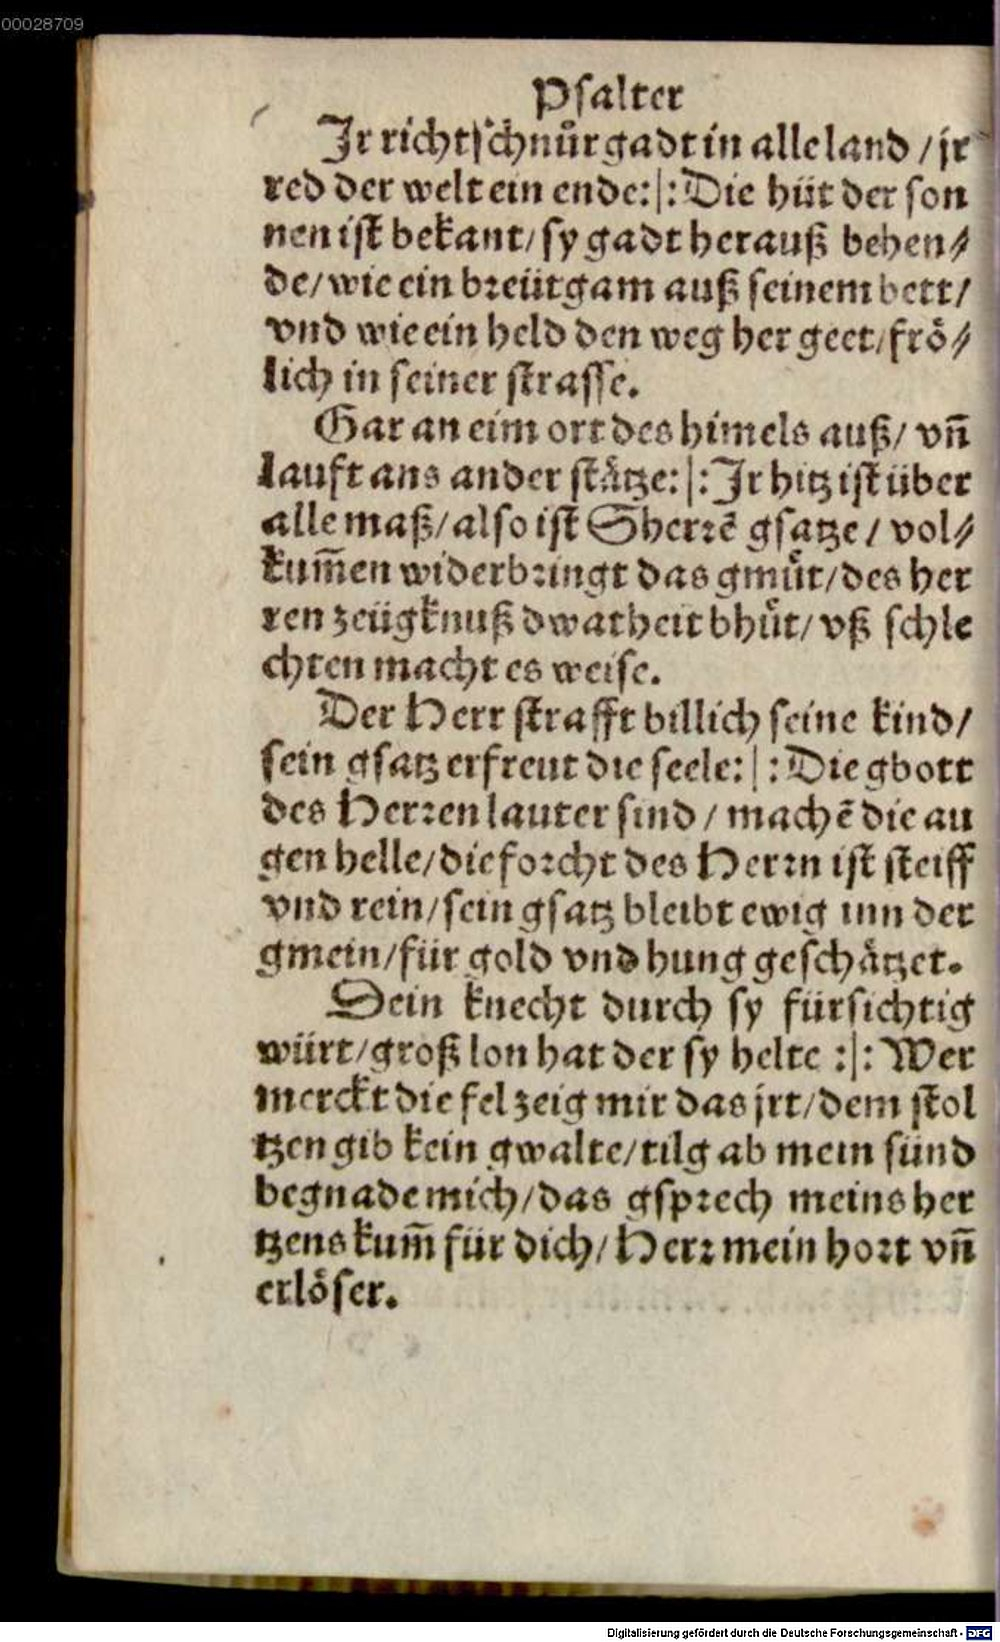 00028709
Psalter
Jr richtschnůr gadt in alle land / jr
red der welt ein ende:|: Die hüt der son
nen ist bekant / sy gadt herauß behen⸗
de / wie ein breütgam auß seinem bett /
vnd wie ein held den weg her geet / frö⸗
lich in seiner strasse.
Gar an eim ort des himels auß / vñ
lauft ans ander stätze:|: Jr hitz ist über
alle maß / also ist Sherrē gsatze / vol⸗
kum̃en widerbringt das gmüt / des her
ren zeügknuß dwarheit bhüt / vß schle
chten macht es weise.
Der Herr strafft billich seine kind /
sein gsatz erfreut die seele:|: Die gbott
des Herren lauter sind / machē die au
gen helle / die forcht des Herrn ist steiff
vnd rein / sein gsatz bleibt ewig inn der
gmein / für gold vnd hung geschätzet.
Dein knecht durch sy fürsichtig
würt / groß lon hat der sy helte :|: Wer
merckt die fel zeig mir das jrt / dem stol
tzen gib kein gwalte / tilg ab mein sünd
begnade mich / das gsprech meins her
tzens kum̃ für dich / Herr mein hort vñ
erlöser.
Digitalisierung gefördert durch die Deutsche Forschungsgemeinschaft - DFG